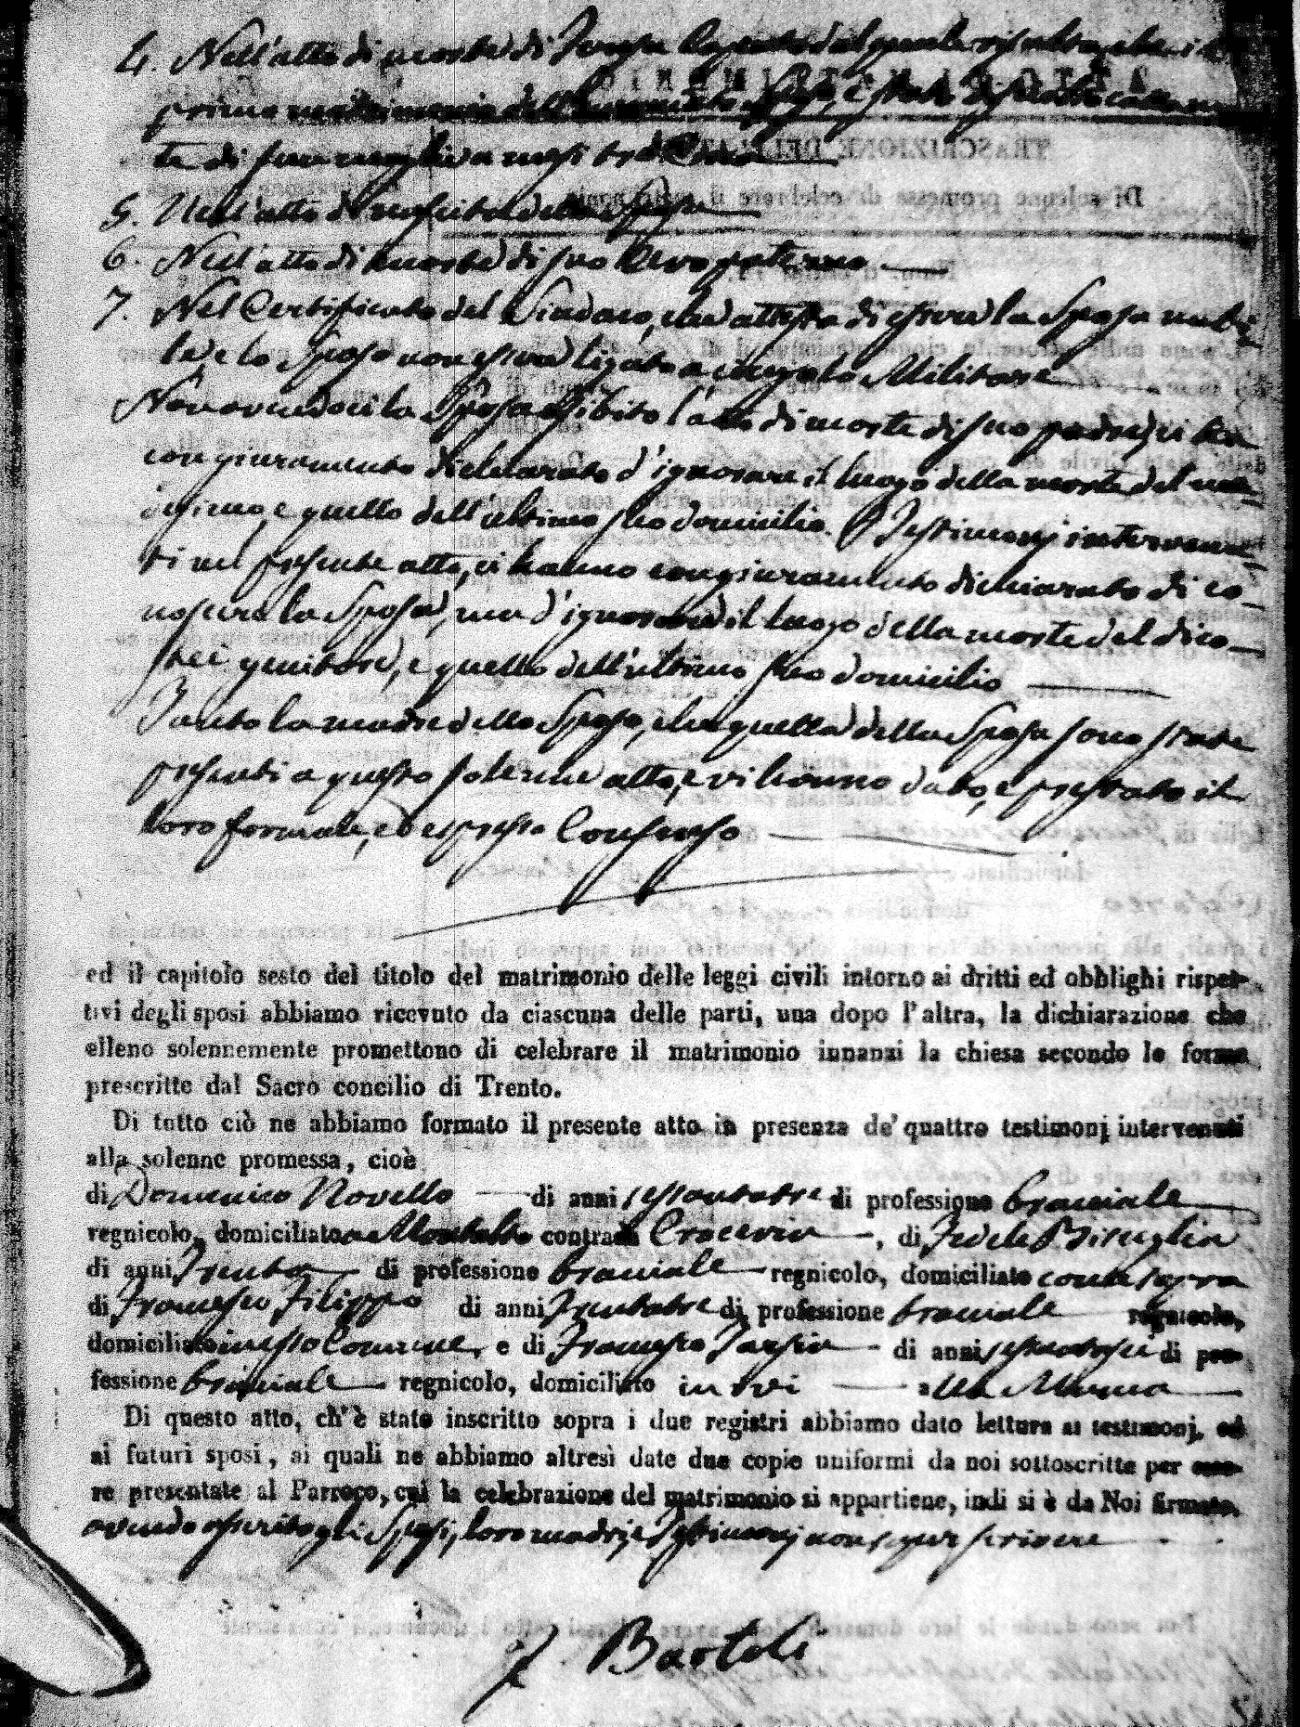 4. Nell'atto di morte di Teresa dal quale risulta che il
primo matrimonio dello sposo, è stato disciolto colla mor
te di sua moglie
5. Nell'atto di nascita della Sposa
6. Nell'atto di morte di suo Avo paterno
7. Nel Certificato del Sindaco, che attesta di essere la Sposa nubi
le e lo Sposo non essere ligato a congedo Militare
Non avendoci la Sposa esibito l'atto di morte di suo padre, ci ha
con giuramento dichiarato d'ignorare il luogo della morte del me
desimo, e quello dell'ultimo suo domicilio. I Testimonj intervenu
ti nel presente atto, ci hanno con giuramento dichiarato di co
noscere la Sposa, ma d'ignorare il luogo della morte del di co
stei genitore, e quello dell'ultimo suo domicilio
Tanto la madre dello Sposo, che quella della Sposa sono state
presenti a questo solenne atto, e vi hanno dato, e prestato il
loro formale, ed espresso Consenso
ed il capitolo sesto del titolo del matrimonio delle leggi civili intorno ai dritti ed obblighi rispet-
tivi degli sposi abbiamo ricevuto da ciascuna delle parti, una dopo l'altra, la dichiarazione che
elleno solennemente promettono di celebrare il matrimonio innanzi la chiesa secondo le forme
prescritte dal Sacro concilio di Trento.
Di tutto ciò ne abbiamo formato il presente atto in presenza de' quattro testimonj intervenuti
alla solenne promessa, cioè
di Domenico Novello di anni sessantatre di professione bracciale
regnicolo, domiciliato a Montalto contrada Crocevia, di Fedele Bisuglia
di anni Trenta di professione bracciale regnicolo, domiciliato come sopra
di Francesco Filippo di anni Trentatre di professione bracciale regnicolo,
domiciliato in esso Comune, e di Francesco di anni di pro-
fessione bracciale regnicolo, domiciliato in ivi
Di questo atto, ch'è stato inscritto sopra i due registri abbiamo dato lettura ai testimonj, ed
ai futuri sposi, ai quali ne abbiamo altresì date due copie uniformi da noi sottoscritte per esse-
re presentate al Parroco, cui la celebrazione del matrimonio si appartiene, indi si è da Noi firmato,
avendo asserito gli Sposi, loro madri, e Testimonj non saper scrivere
Bartoli